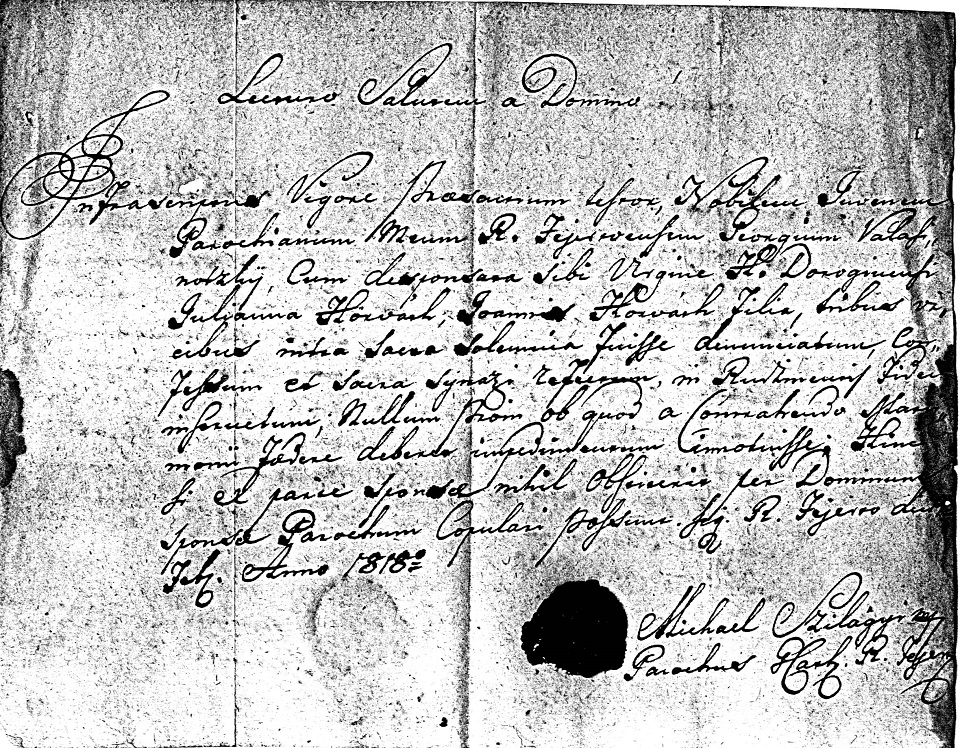 Lecturo Salutem a Domino
Infrascriptus Vigore Præsentium testor, Nobilem Juvenem
Parochianum Meum R. Fejérvensem Georgium
Cum desponsata sibi Virgine H. Doroginensi
Julianna Horváth, Joannis Horváth Filia, tribus vi,,
cibus intra Sacra Solemnia fuisse denunciatum, Con,,
fessum et Sacra Synaxi refectum, in Rudimentis Fidei
instructum, Nullum prout ob quod a Contrahendo Matri
monii Fœdere deberet impedimentum Hinc
si ex parte Sponsæ nihil Obstiterit per Dominum
Sponsæ Parochum Copulari possunt. Sig. R. Fejértó
Feb. Anno 1818º
Michael Szilágyi mp
Parochus R.